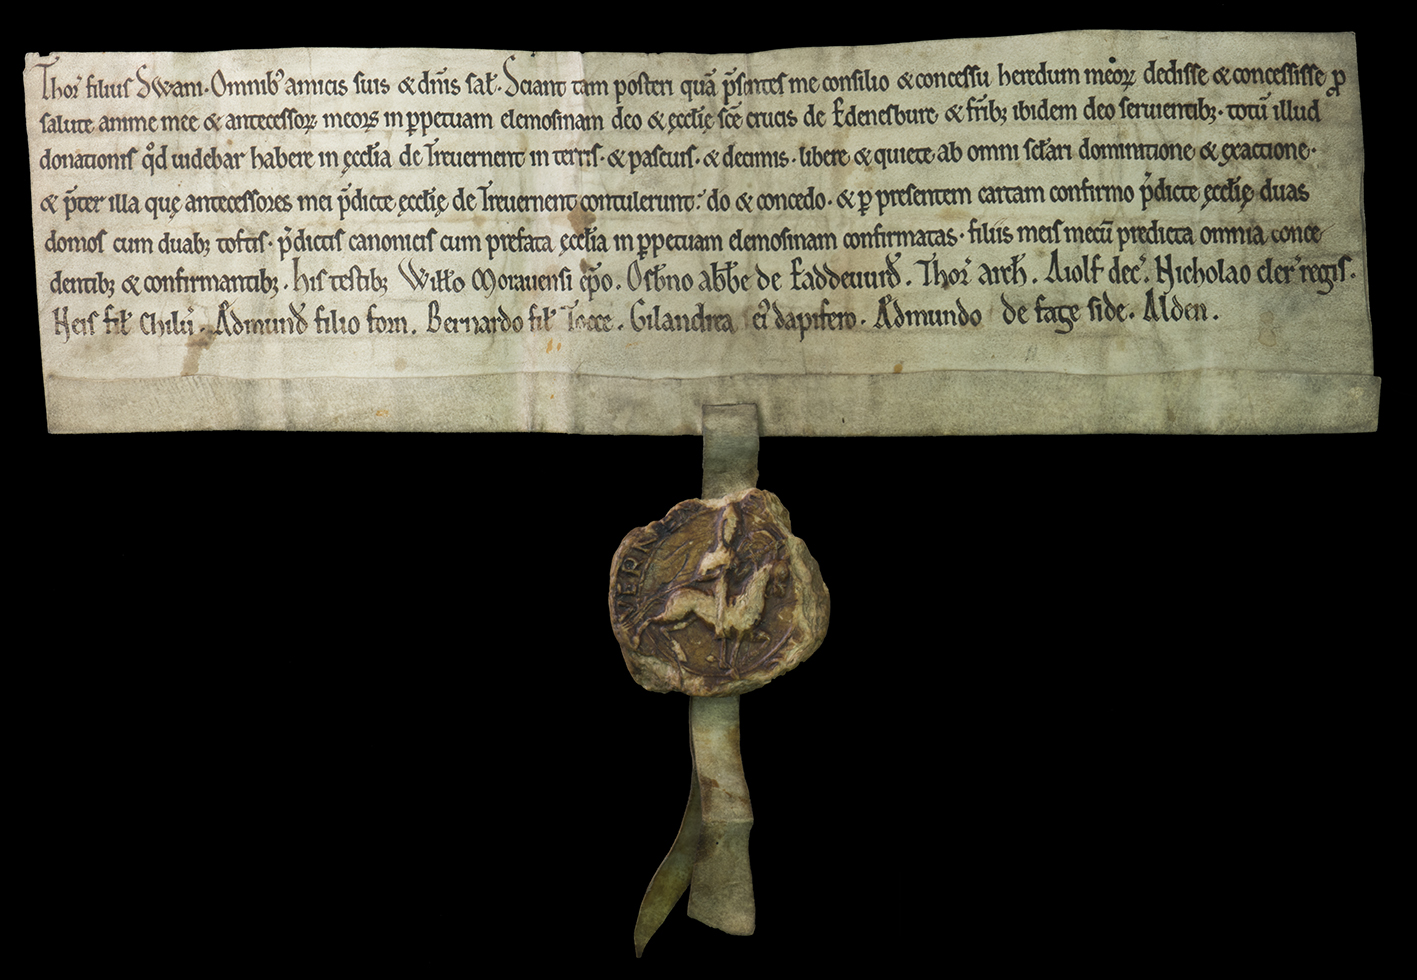 Thor' filius Swani. Omnib' amicis suis & dn̄is sal̄. Sciant tam posteri quā p̄sentes me consilio & concessu heredum meoꝝ dedisse & concessisse ꝓ
salute anime mee & antecessoꝝ meoꝝ in ꝑpetuam elemosinam deo & ęccl̄ię sc̄e crucis de Edenesburc & fr̄ibꝫ ibidem deo seruientibꝫ. totū illud
donationis qd̓ uidebar habere in ęccl̄ia de Treuernent in terris. & pascuis. & decimis. libere & quiete ab omni scl̄ari dominatione & ęxactione.
& p̄ter illa quę antecessores mei p̄dicte ęccl̄ię de Treuernent contulerunt: do & concedo. & ꝑ presentem cartam confirmo p̄dicte ęccl̄ię duas
domos cum duabꝫ toftis. p̄dictis canonicis cum prefata ęccl̄ia in ꝑpetuam elemosinam confirmatas. filiis meis mecū predicta omnia conce
dentibꝫ & confirmantibꝫ. his testibꝫ Will̄o Morauensi ep̄o. Osb̄no abb̄e de Eaddeuurđ. Thor' arch̄. Aiolf dec'. Nicholao cler' regis.
Neis fil̄ Chiluṅ. Ædmunđ filio forn. Bernardo fil̄ Tocce. Gilandrea ei' dapifero. Ædmundo de fage side. Alden.
VERNEN